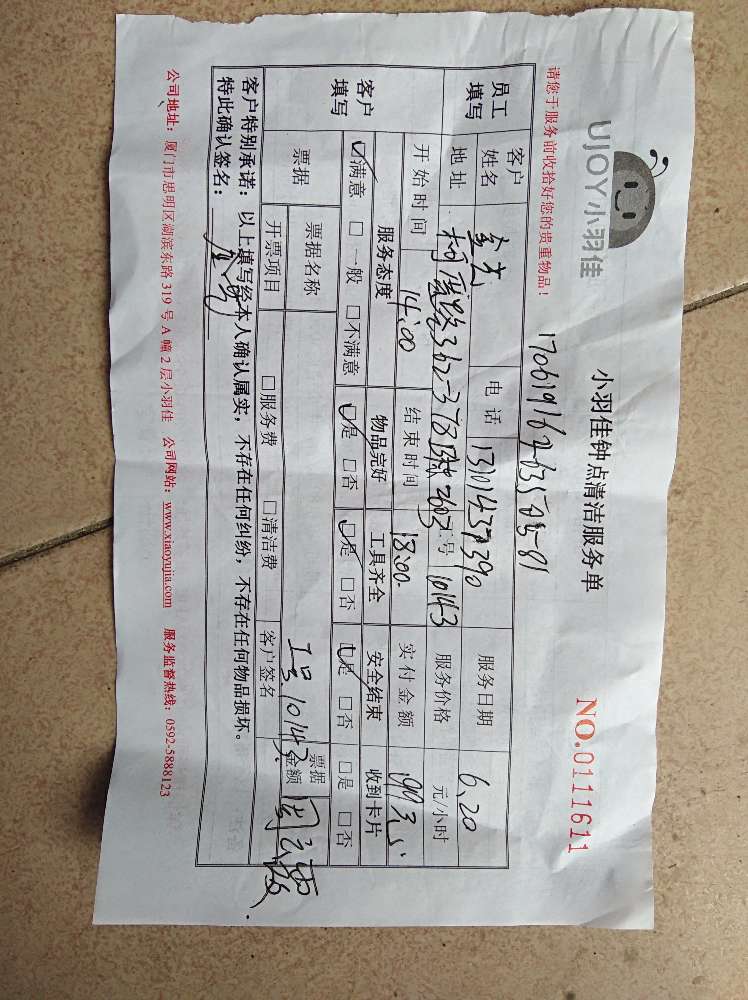 UJOY小羽佳
小羽佳钟点清洁服务单
NO.0111611
请您于服务前收拾好您的贵重物品！
员工填写
客户姓名
电话
13101437390
服务日期
6.20
地址
号
10143
服务价格
元/小时
开始时间
14:00
结束时间
18:00
实付金额
99元
客户填写
服务态度
物品完好
工具齐全
安全结束
收到卡片
☑满意 □一般 □不满意
☑是 □否
☑是 □否
☑是 □否
□是 □否
票据
票据名称
工号10143
开票项目
□服务费
□清洁费
客户签名
票据金额
客户特别承诺：以上填写经本人确认属实，不存在任何纠纷，不存在任何物品损坏。
特此确认签名：
公司地址：厦门市思明区湖滨东路 319 号 A 幢 2 层小羽佳 公司网站：www.xiaoyujia.com 服务监督热线：0592-5888123